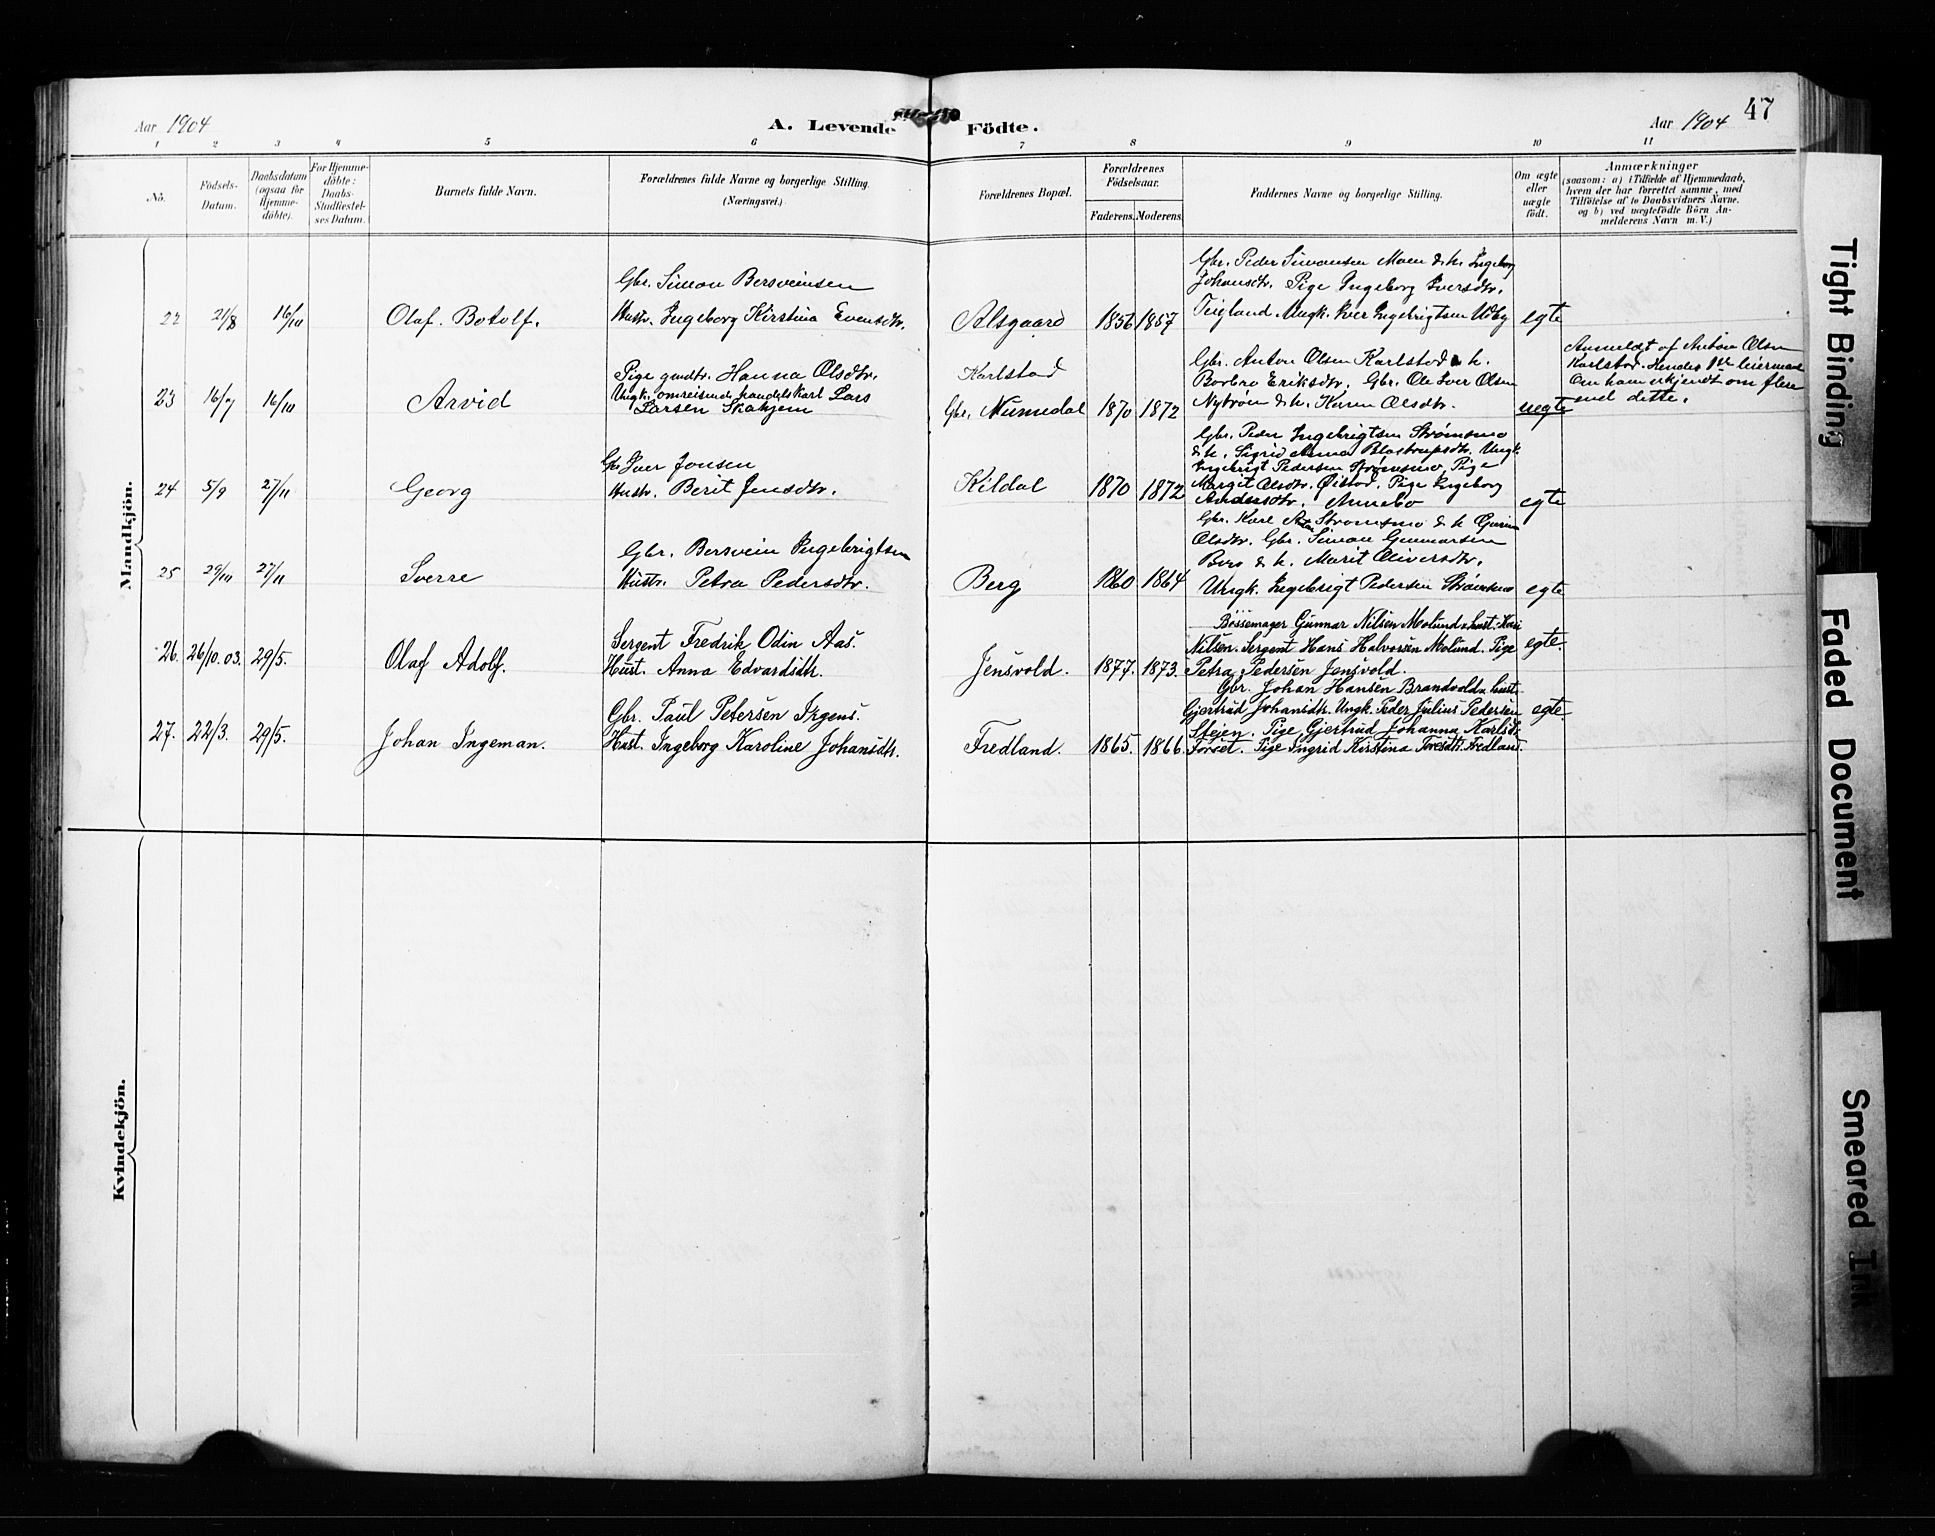 Aar 1904
A. Levende Födte.
Aar 1904 47
1 2 3 4 5 6 7 8 9 10 11
No.
Födsels-
Datum.
Daabsdatum
(ogsaa for
Hjemme-
döbte).
For Hjemme-
döbte:
Daabs-
Stadfæstel-
ses Datum.
Barnets fulde Navn.
Forældrenes fulde Navne og borgerlige Stilling.
(Næringsvei.)
Forældrenes Bopæl.
Forældrenes
Födselsaar.
Faderens. Moderens.
Faddernes Navne og borgerlige Stilling.
Om ægte
eller
uægte
födt.
Anmærkninger
(saasom: a) i Tilfælde af Hjemmedaab,
hvem der har forrettet samme, med
Tilföielse af to Daabsvidners Navne.
og b) ved uægtefödte Börn An-
melderens Navn m. V.)
Mandkjön.
22 21/8 16/10 Olaf. Botolf.
Gbr. Simon Bersveinsen
Hustr. Ingeborg Kirstina Evensdtr.
Alsgaard 1856 1857
Gbr. Peder Simonsen Moen & h. Ingeborg
Johansdtr. Pige Ingeborg Iversdtr.
Teigland. Ungk. Iver Ingebrigtsen Udby
egte
23 16/7 16/10 Arvid
Pige gmdtr. Hanna Olsdtr.
Ungk. omreisende handelskarl Lars
Larsen Skahjem
Karlstad
Gbr. Numedal 1870 1872
Gbr. Anton Olsen Karlstad & h.
Borbro Eriksdtr. Gbr. Ole Iver Olsen
Nybroen & h. Karen Olsdtr.
uegte
Anmeldt af Anton Olsen
Karlstad. Hendes 1ste leiermaal
om ham ukjendt om flere
end dette.
24 5/9 27/11 Georg
Gbr Iver Jonsen
Hustr. Berit Jensdtr.
Kildal 1870 1872
Gbr. Peder Ingebrigtsen Strømsmo
& h. Sigrid Anna Blostrupsdtr. Ungk.
Ingebrigt Pedersen Strømsmo, Pige
Margit Olsdtr. Øistad, Pige Ingeborg
Andersdtr. Annebo
egte
25 29/10 27/11 Sverre
Gbr. Bersvein Ingebrigtsen
Hustr. Petra Pedersdtr.
Berg 1860 1864
Gbr. Karl Strømsmo & h Gurine
Olsdtr. Gbr. Simon Gunnarsen
Berg & h. Marit Oliversdtr.
Ungk. Ingebrigt Pedersen Strømsmo
egte
26. 26/10.03. 29/5. Olaf Adolf.
Sergent Fredrik Odin Aas.
Hust. Anna Edvardsdtr.
Jensvold. 1877. 1873.
Bøssemager Gunnar Nilsen Molund & hust. Kari
Nilsen. Sergent Hans Halvorsen Molund. Pige
Petra Pedersen Jensvold.
egte.
27. 22/3. 29/5. Johan Ingeman.
Gbr. Paul Petersen Irgens.
Hust. Ingeborg Karoline Johansdtr.
Fredland. 1865. 1866.
Gbr. Johan Hansen Brandvold & hust.
Gjertrud Johansdtr. Ungk. Peder Julius Pedersen
Steien. Pige Gjertrud Johanna Karlsdtr
Forset. Pige Ingrid Kirstina Toresdtr. Fredland.
egte
Kvindekjön.
Tight Binding
Faded Document
Smeared Ink